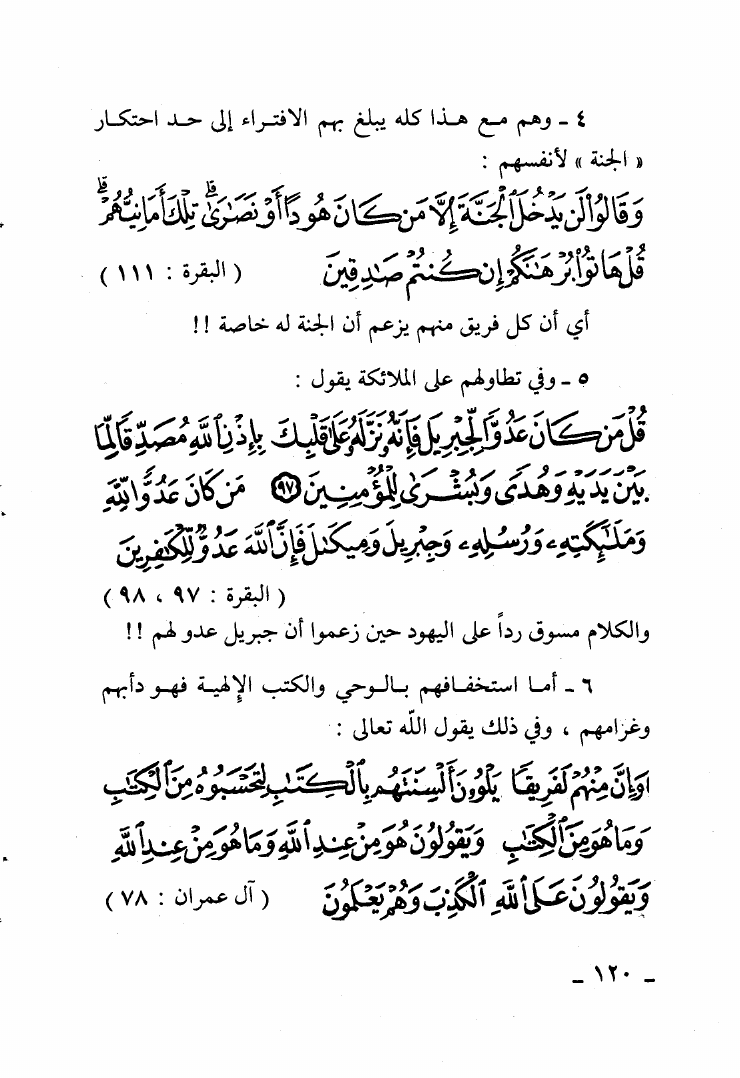 ٤ ـ وهم مـع هـذا كله يبلغ بهم الافتـراء إلى حـد احتكـار
« الجنة » لأنفسهم :
وَقَالُوا۟ لَن يَدْخُلَ ٱلْجَنَّةَ إِلَّا مَن كَانَ هُودًا أَوْ نَصَـٰرَىٰ ۗ تِلْكَ أَمَانِيُّهُمْ ۗ
قُلْ هَاتُوا۟ بُرْهَـٰنَكُمْ إِن كُنتُمْ صَـٰدِقِينَ ( البقرة : ١١١ )
أي أن كل فريق منهم يزعم أن الجنة له خاصة !!
٥ ـ وفي تطاولهم على الملائكة يقول :
قُلْ مَن كَانَ عَدُوًّا لِّجِبْرِيلَ فَإِنَّهُۥ نَزَّلَهُۥ عَلَىٰ قَلْبِكَ بِإِذْنِ ٱللَّهِ مُصَدِّقًا لِّمَا
بَيْنَ يَدَيْهِ وَهُدًى وَبُشْرَىٰ لِلْمُؤْمِنِينَ ٩٧ مَن كَانَ عَدُوًّا لِّلَّهِ
وَمَلَـٰٓئِكَتِهِۦ وَرُسُلِهِۦ وَجِبْرِيلَ وَمِيكَىٰلَ فَإِنَّ ٱللَّهَ عَدُوٌّ لِّلْكَـٰفِرِينَ
( البقرة : ٩٧ ، ٩٨ )
والكلام مسوق رداً على اليهود حين زعموا أن جبريل عدو لهم !!
٦ ـ أمـا استخفـافهم بـالـوحي والكتب الإلهيـة فهـو دأبهم
وغرامهم ، وفي ذلك يقول الله تعالى :
وَإِنَّ مِنْهُمْ لَفَرِيقًا يَلْوُۥنَ أَلْسِنَتَهُم بِٱلْكِتَـٰبِ لِتَحْسَبُوهُ مِنَ ٱلْكِتَـٰبِ
وَمَا هُوَ مِنَ ٱلْكِتَـٰبِ وَيَقُولُونَ هُوَ مِنْ عِندِ ٱللَّهِ وَمَا هُوَ مِنْ عِندِ ٱللَّهِ
وَيَقُولُونَ عَلَى ٱللَّهِ ٱلْكَذِبَ وَهُمْ يَعْلَمُونَ ( آل عمران : ٧٨ )
ـ ١٢٠ ـ